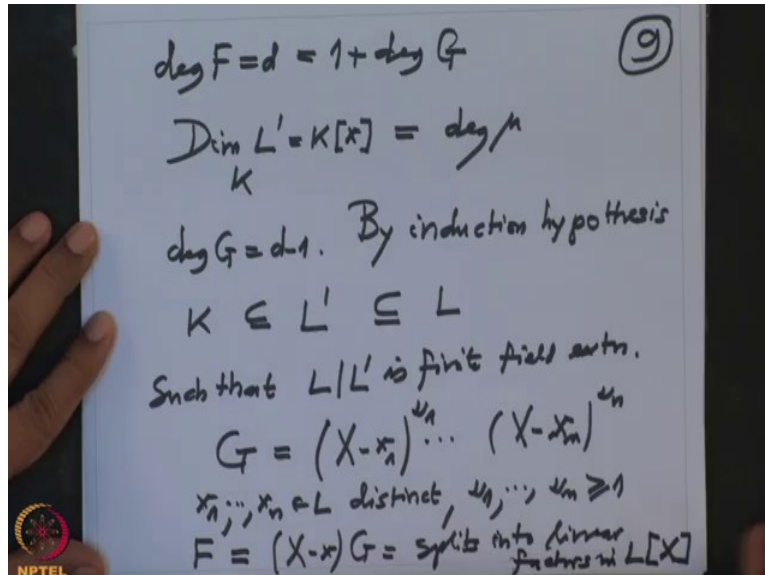 deg F = d = 1 + deg G
9
Dim L' = K[x] = deg μ
K
deg G = d-1. By induction hypothesis
K ⊆ L' ⊆ L
Such that L|L' is finit field extn.
G = (X-x₁)^ν₁ ... (X-xₙ)^νₙ
x₁, ..., xₙ ∈ L distinct, ν₁, ..., νₙ ≥ 1
F = (X-x) G = splits into linear
factors in L[X]
NPTEL